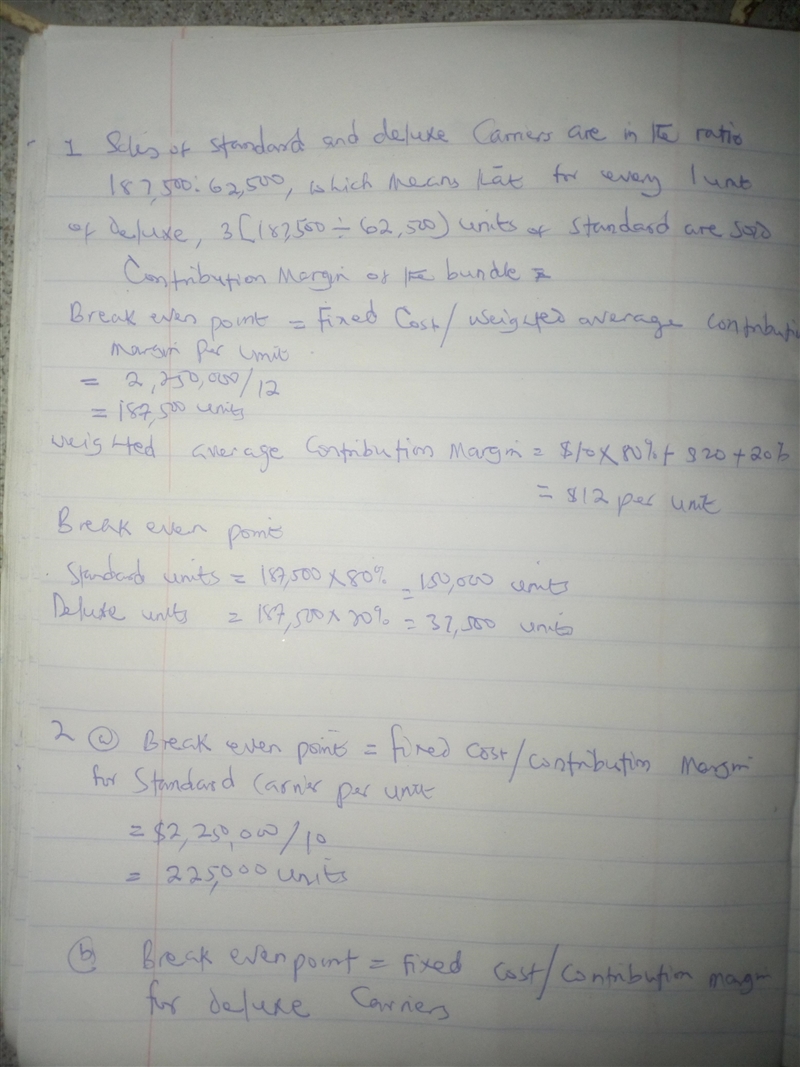 1 Sales of standard and deluxe Carriers are in the ratio
187,500:62,500, which means that for every 1 unit
of deluxe, 3[187,500 ÷ 62,500) units of standard are sold
Contribution Margin of the bundle =
Break even point = Fixed Cost/ weighted average contributi
Margin per unit.
= 2,250,000/12
= 187,500 units
weighted average Contribution Margin = $10 x 80% + $20 + 20%
= $12 per unit
Break even point
Standard units = 187,500 x 80% = 150,000 units
Deluxe units = 187,500 x 20% = 37,500 units
2 (a) Break even points = fixed cost/contribution Margin
for Standard Carrier per unit
= $2,250,000/10
= 225,000 units
(b) Break even point = Fixed cost/contribution margin
for deluxe Carriers